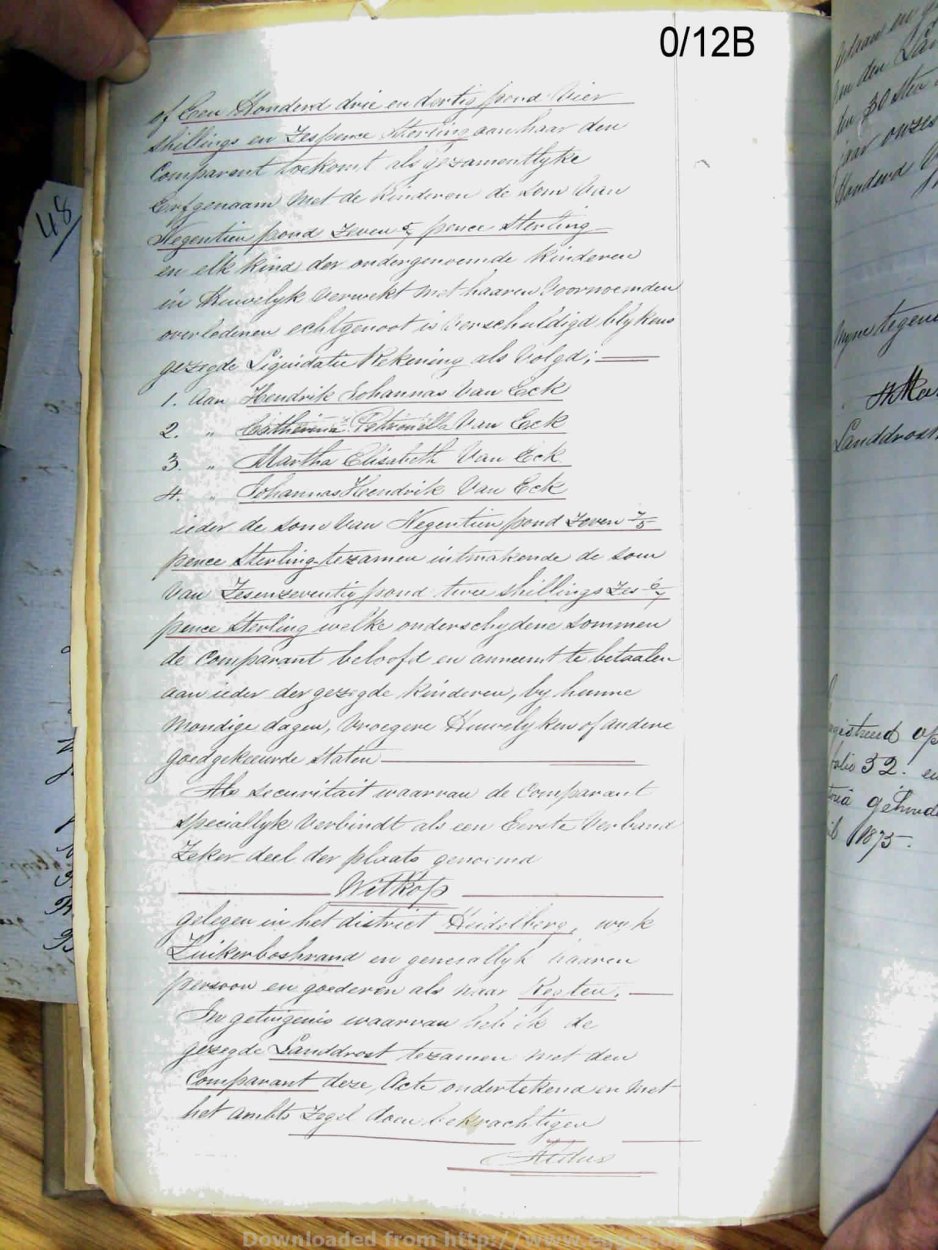 0/12B
of Een Honderd drie en dertig pond Vier
Shillings en Zespence Sterling aan haar den
Comparant toekomt als gezamentlyke
Erfgenaam Met de Kinderen de Som Van
Negentien pond Zeven pence Sterling
en elk Kind der ondergenoemde Kinderen
in Huwelyk Verwekt Met haaren Voornoemden
overledenen echtgenoot is Verschuldigd, blykens
gezegde Liquidatie Rekening als Volgd;
1. Aan Hendrik Johannas Van Eck
2. " Catherina Petronella Van Eck
3. " Martha Elisabeth Van Eck
4. " Johannas Hendrik Van Eck
ieder de Som Van Negentien pond Zeven 7/5
pence Sterling tezamen uitmakende de Som
Van Zesenzeventig pond twee Shillings Zes
pence Sterling welke onderschydene Sommen
de Comparant beloofd en anneemt te betaalen
aan ieder der gezegde Kinderen, by hunne
Mondige dagen, Vroegere Huwelyken of andere
goedgekeurde Staten
Als Securitait waarvan de Comparant
Speciallyk Verbindt als een Eerste Verband
Zeker deel der plaats genoemd
Witkop
gelegen in het district Heidelberg, wyk
Zuikerboshrand en generallyk haaren
persoon en goederen als naar Regten.
In getuigenis waarvan heb ik de
gezegde Landdrost tezamen met den
Comparant deze, Acte ondertekend en Met
het ambts Zegel doen bekrachtigen
Aldus
48
Landdrost
Honderd
folio 32. en
1875.
Downloaded from http://www.eggsa.org